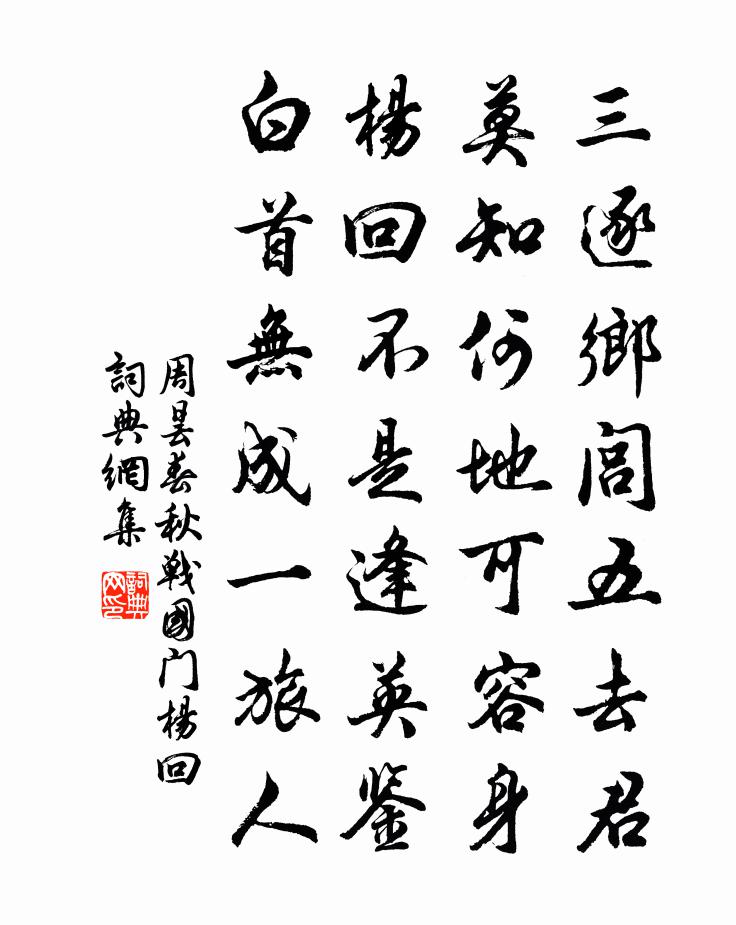 三逐鄉閭五去君
莫知何地可容身
楊回不是逢英鑒
白首無成一旅人
周昙春秋戰國门楊回
詞典網集
詞典网印